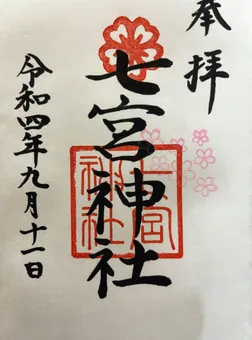 奉拝
七宮神社
七宮神社
令和四年九月十一日